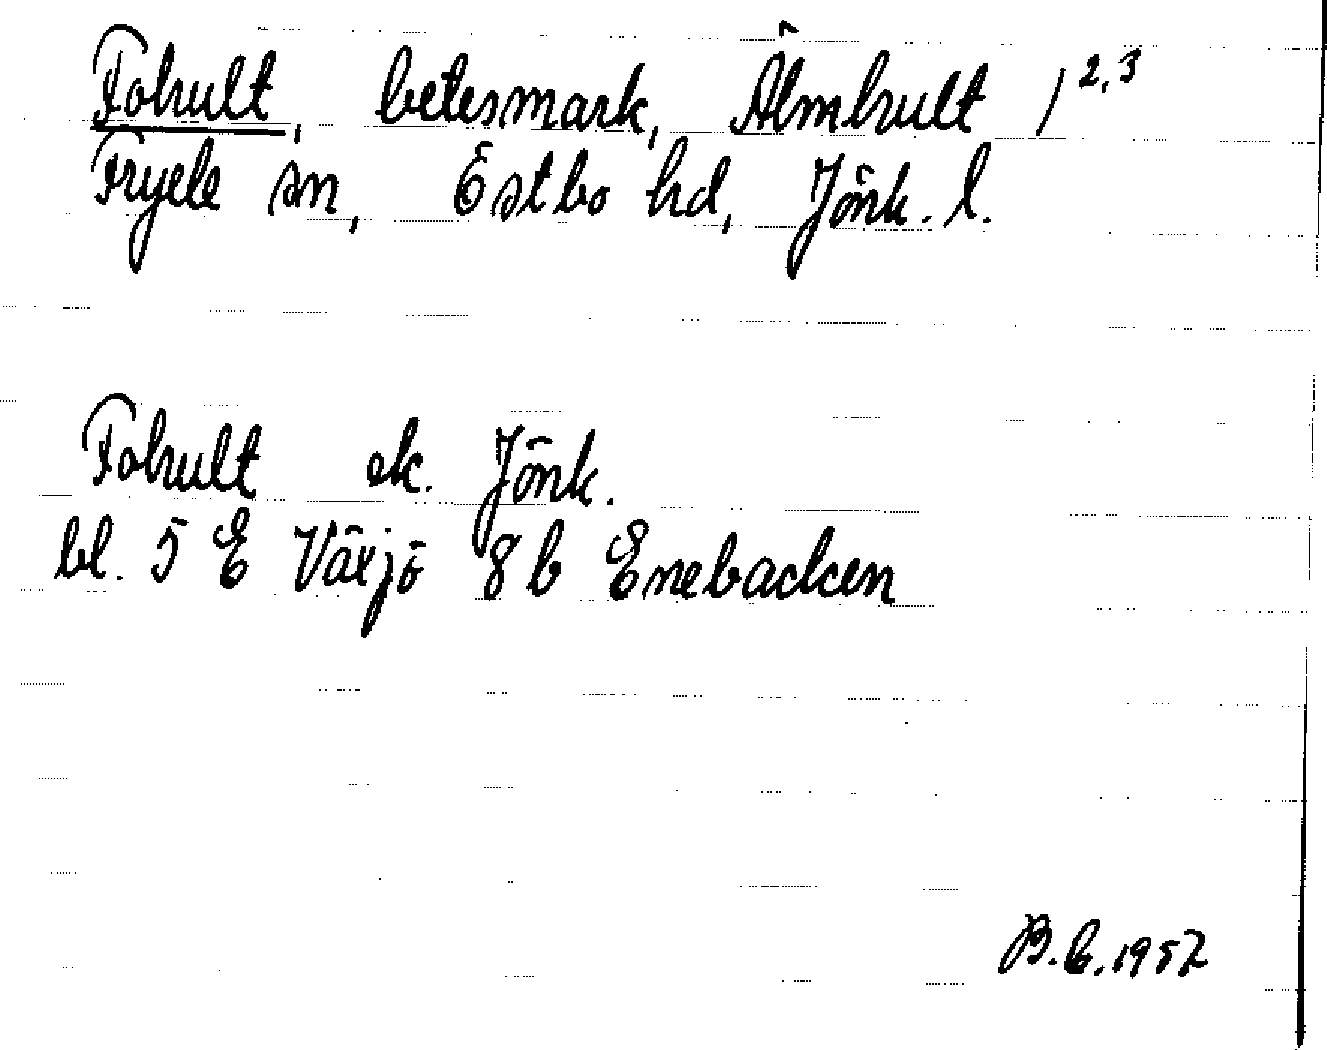 Fohult, betesmark, Älmhult 1 2,3
Fryele sn, Östbo hd, Jönk. l.
Fohult ek. Jönk.
bl. 5 E Växjö 8 b Enebacken
B. b. 1957